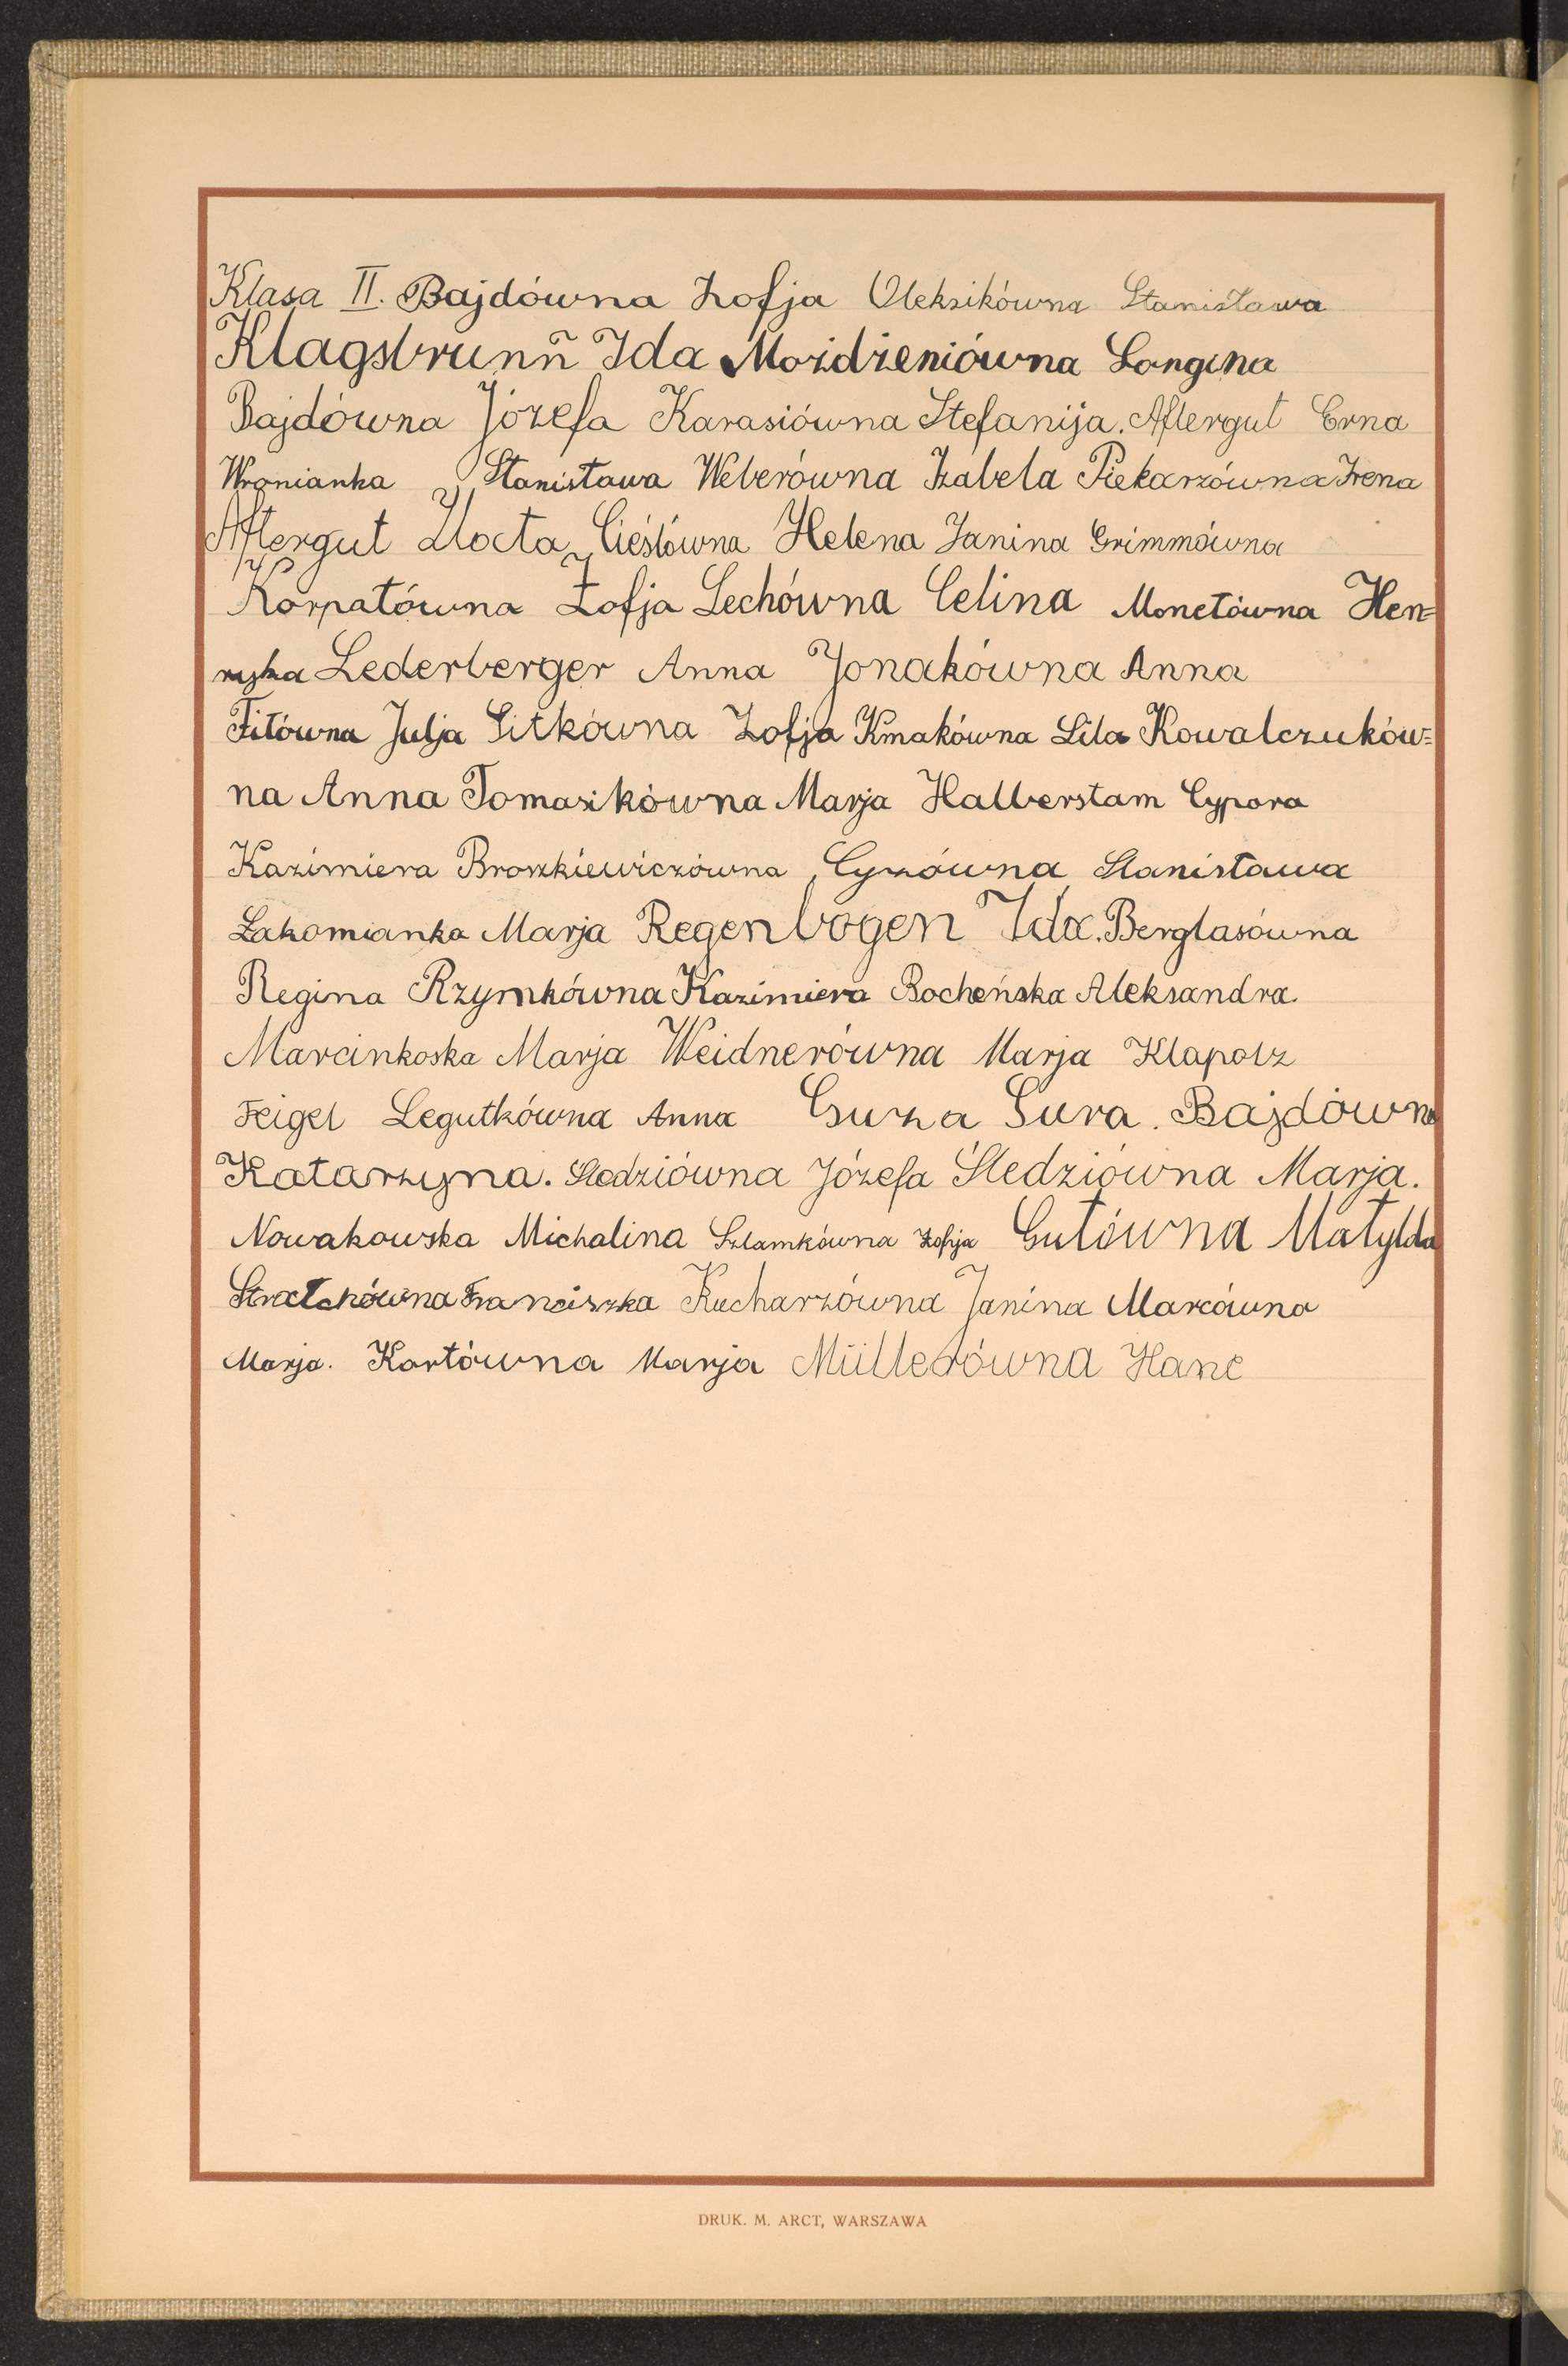 Klasa II. Bajdówna Zofja Oleksikówna Stanisława
Klagsbrunn Ida Moździeniówna Longina
Bajdówna Józefa Karasiówna Stefanija. Aftergut Erna
Wronianka Stanisława Weberówna Izabela Piekarzówna Irena
Aftergut Złocta Cieślówna Helena Janina Grimmówna
Korpatówna Zofja Lechówna Celina Monetówna Hen=
ryka Lederberger Anna Jonakówna Anna
Fitówna Julja Sitkówna Zofja Kmakówna Lila Kowalczuków=
na Anna Tomasikówna Marja Halberstam Cypora
Kazimiera Broszkiewiczówna Cyzówna Stanisława
Łakomianka Marja Regenbogen Ida. Berglasówna
Regina Rzymkówna Kazimiera Bocheńska Aleksandra.
Marcinkoska Marja Weidnerówna Marja Klapolz
Feigel Legutkówna Anna Guza Sura. Bajdówna
Katarzyna. Śledziówna Józefa Śledziówna Marja.
Nowakowska Michalina Szlamkówna Zofija Gutówna Matylda
Franciszka Kucharzówna Janina Marcówna
Marja. Kortówna Marja Müllerówna Hane
DRUK. M. ARCT, WARSZAWA